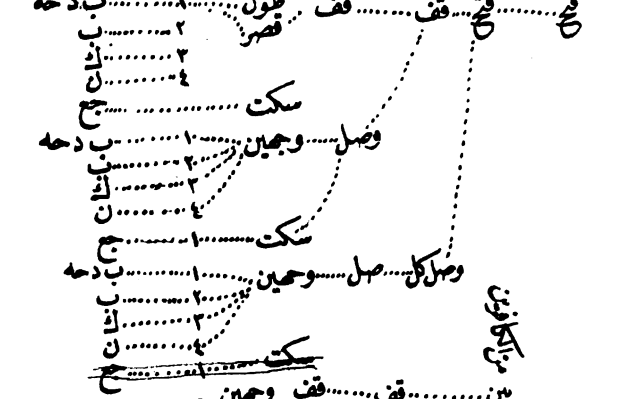 فتح فتح قف قف طول ١ ب دحه
قصر ٢ ب
٣ ك
٤ ن
سكت جع
وصل وجهين ١ ب دحه
٢ ب
٣ ك
٤ ن
سكت ١ جع
وصل كل صل وجهين ١ ب دحه
٢ ب
٣ ك
٤ ن
من الكافرين
سكت ١ جع
بين قف قف وجهين